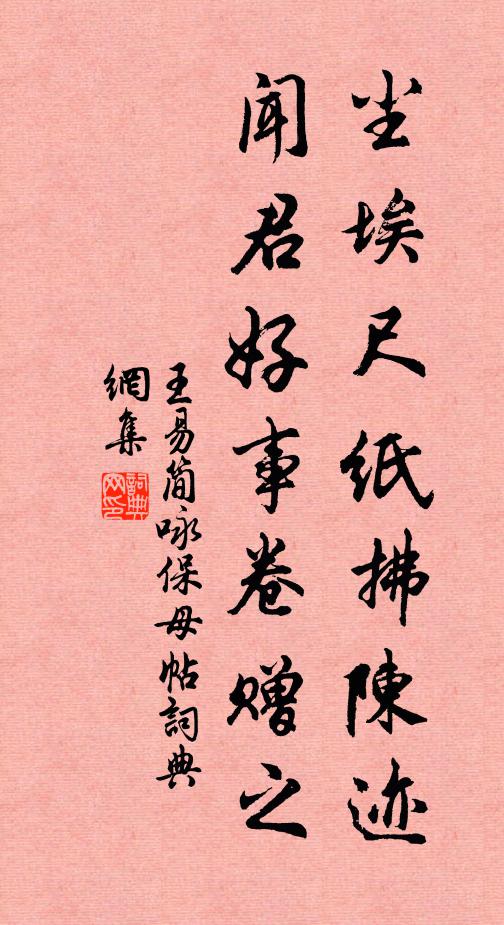 尘埃尺纸拂陳迹
闻君好事卷赠之
王易简咏保母帖詞典
網集
詞典
网印